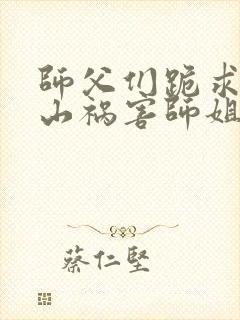 師父们跪求
山祸害師姐
蔡仁堅